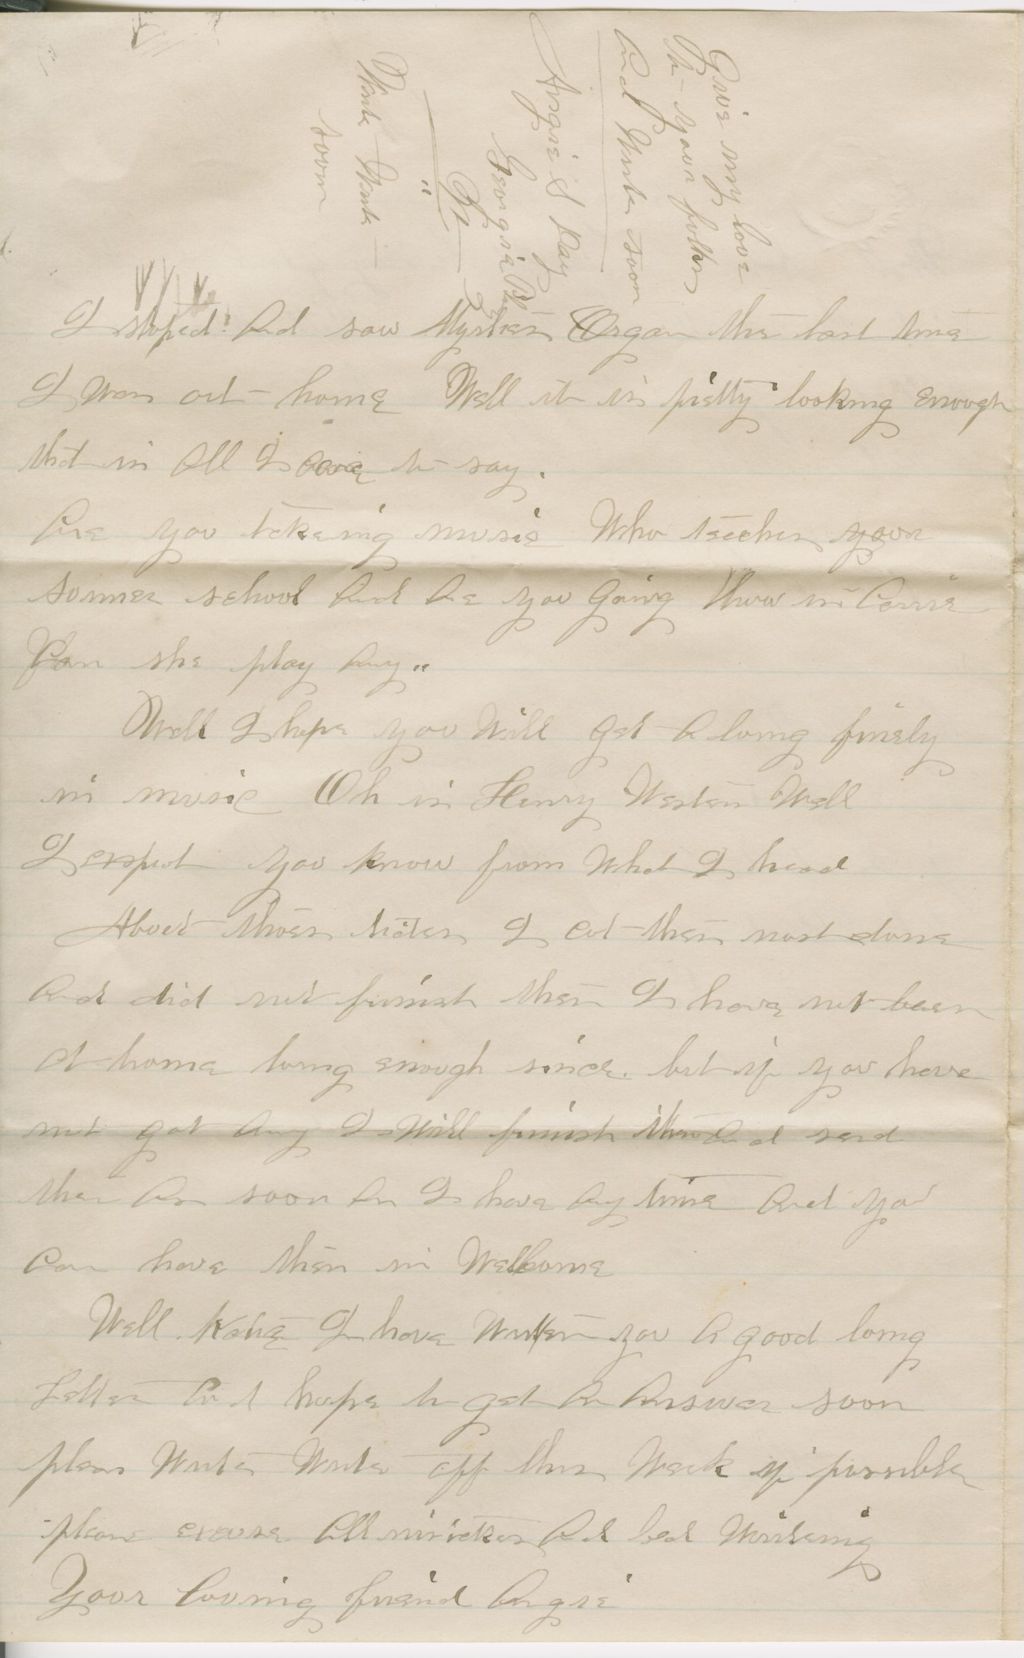 Give my love
to your folks
And Write soon
Angie S Ray
Georgia
Vt
Write Write
soon
I stoped And saw Myrties Organ the last time
I was out home Well it is pretty looking enough
that is All I have to say.
Are you takeing music Who teeches your
sommer school And Are you going thare is Carrie
Can she play Any
Well I hope you Will get A long finely
in music Oh is Henry Well
I expect you know from What I head
About thoes I cut them most done
And did not finish them I have not been
At home long enough since. but if you have
not got Any I Will finish them And send
them As soon As I have Any time And you
can have them in Welcome
Well Katie I have Written you A good long
Letter And hope to get An Answer soon
pleas Write Write off this Week if possible
pleas excuse All mistakes And bad Writeing
Your loving friend Angie